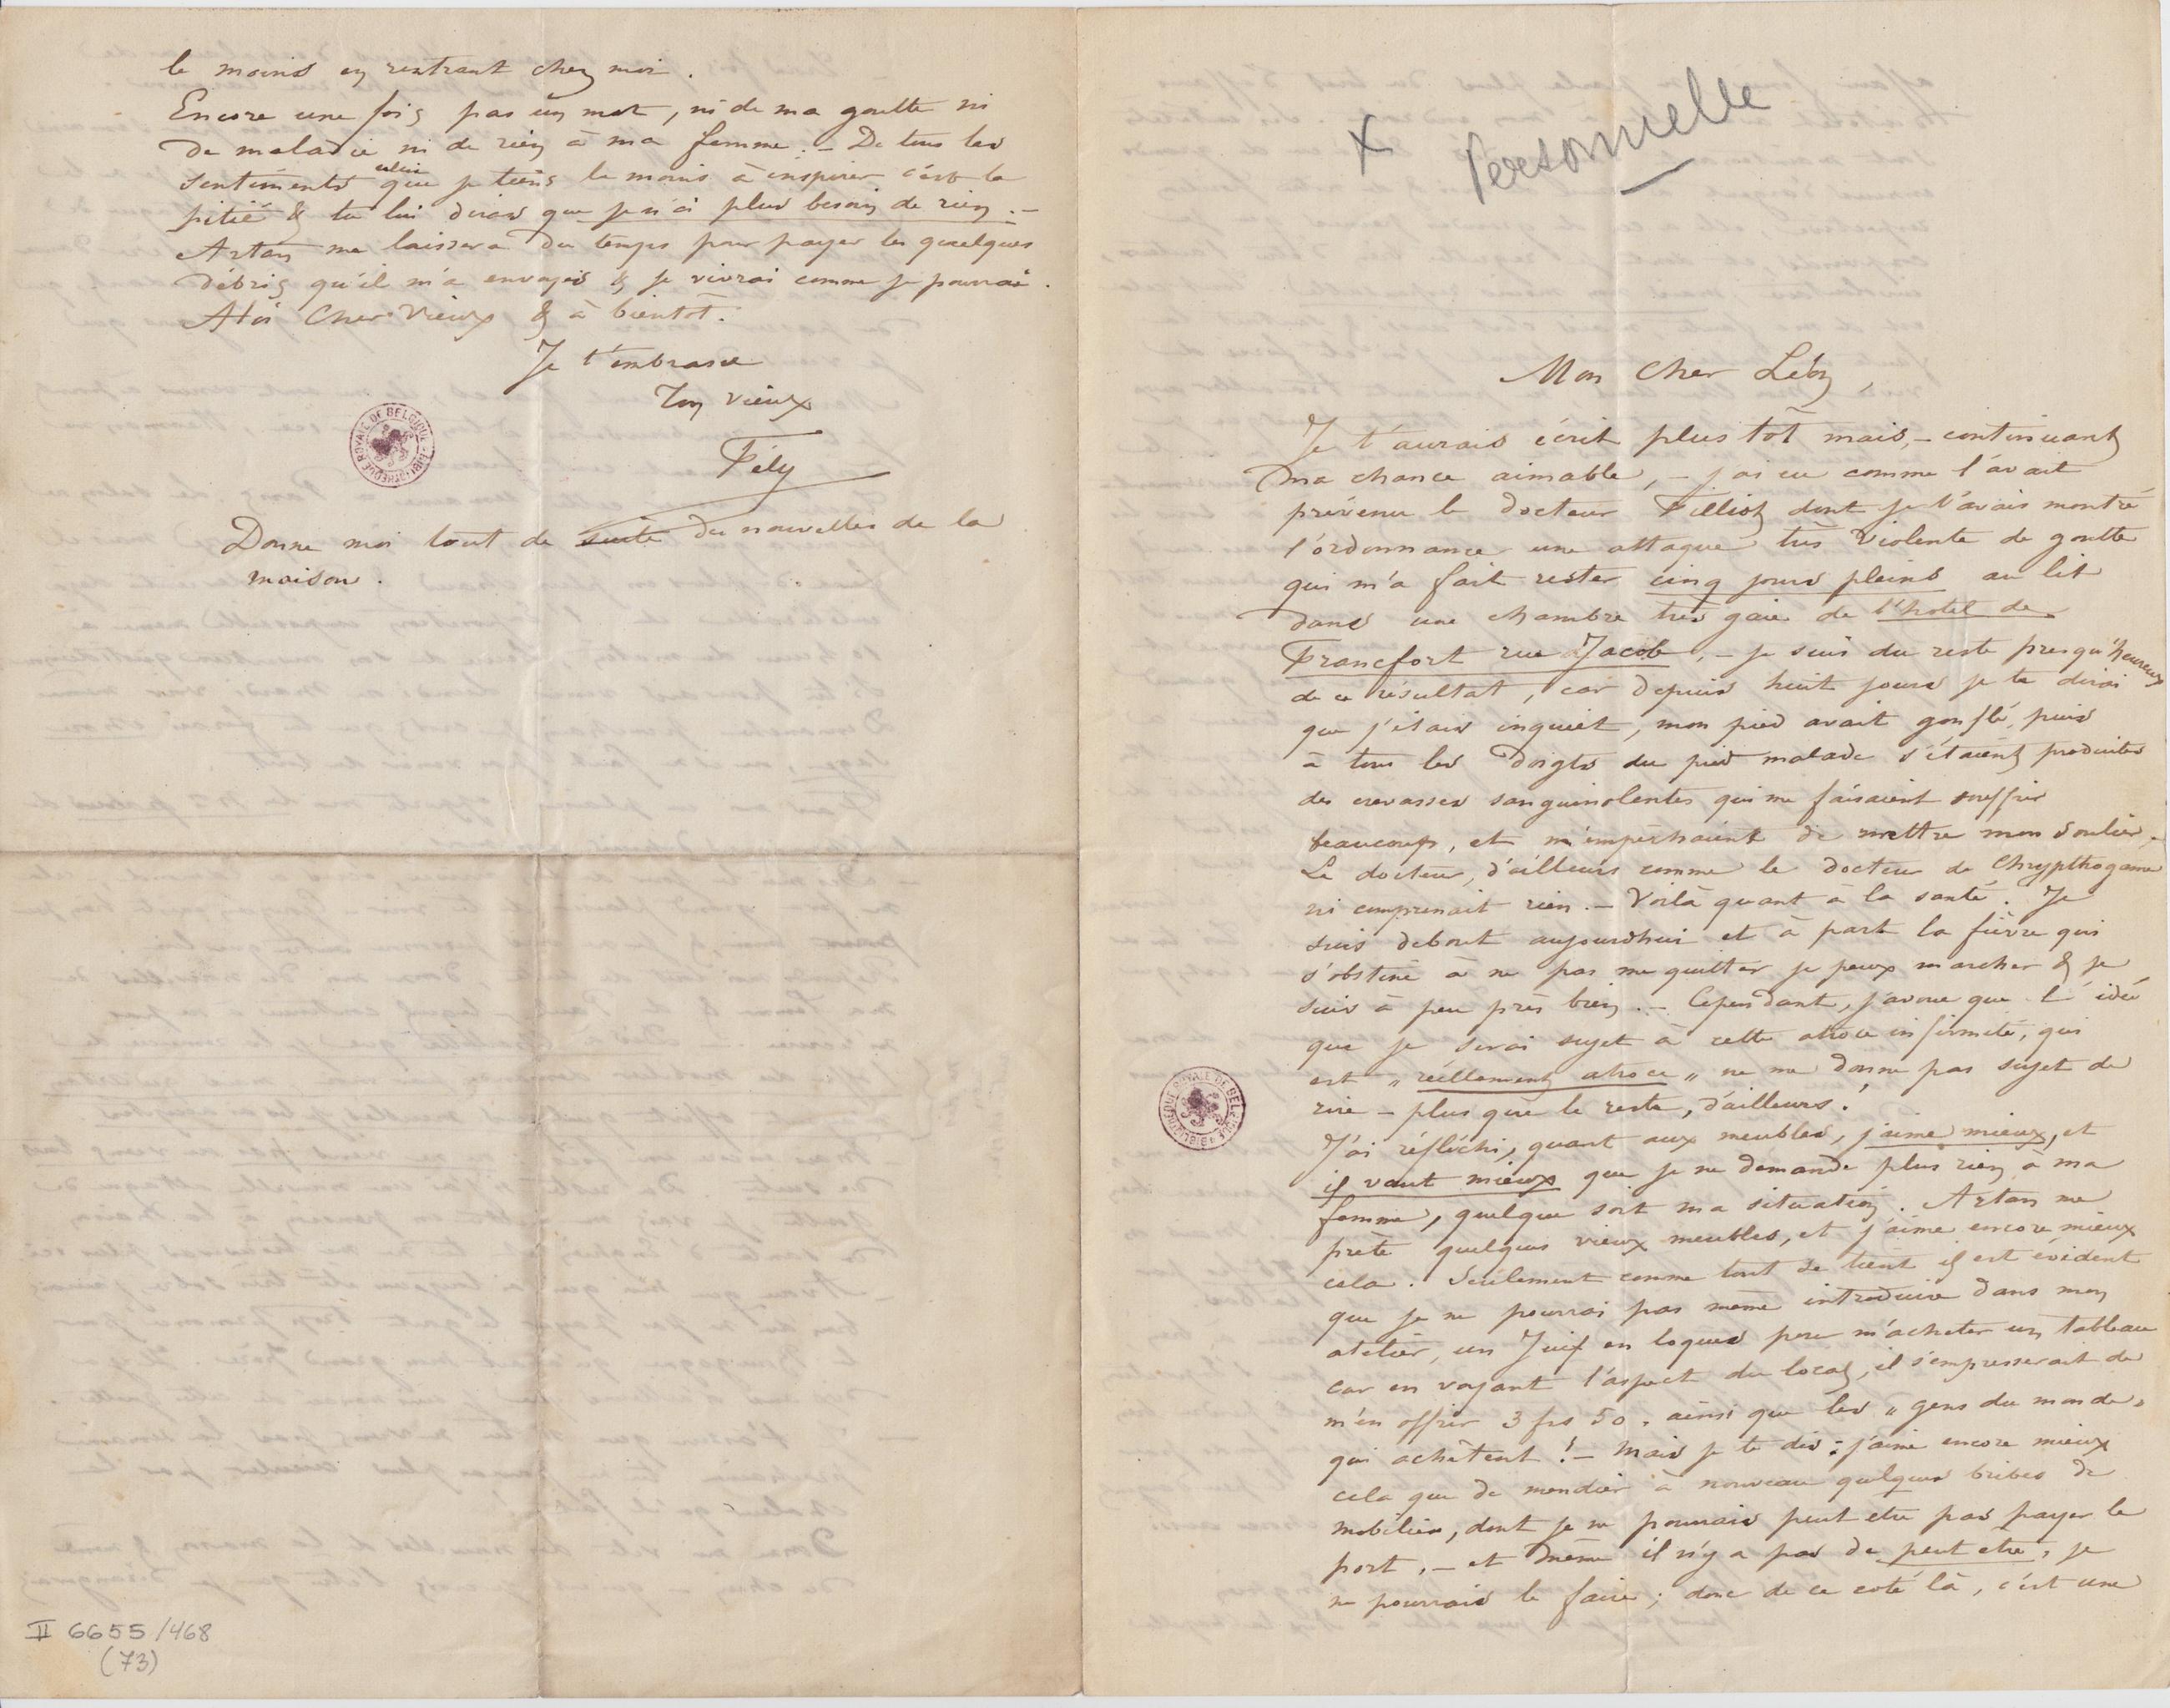 X Personnelle
Mon Cher Léon,
Je t'aurais écrit plus tôt mais, – continuant
ma chance aimable, – j'ai eu comme l'avait
prévenu le docteur Filliot dont je t'avais montré
l'ordonnance une attaque très violente de goutte
qui m'a fait rester cinq jours pleins au lit
dans une chambre très gaie de l'hotel de
Francfort rue Jacob, – je suis du reste presqu'heureux
de ce résultat, car depuis huit jours je te dirai
que j'étais inquiet, mon pied avait gonflé, puis
à tous les doigts du pied malade s'étaient produites
des crevasses sanguinolentes qui me faisaient souffrir
beaucoup, et m'empêchaient de mettre mon soulier. –
Le docteur, d'ailleurs comme le docteur de Chrypthogame
ni comprenait rien. – Voilà quant à la santé. Je
suis debout aujourdhui et à part la fièvre qui
s'obstine à ne pas me quitter je peux marcher & je
suis à peu près bien. – Cependant, j'avoue que l'idée
que je serai sujet à cette atroce infirmité, qui
est „réellement atroce„ ne me donne pas sujet de
rire – plus que le reste, d'ailleurs!
J'ai réfléchi, quant aux meubles, j'aime mieux, et
il vaut mieux que je ne demande plus rien à ma
femme, quelque soit ma situation. Artan me
prète quelques vieux meubles, et j'aime encore mieux
cela. Seulement comme tout se tient il est évident
que je ne pourrai pas même introduire dans mon
atelier, un Juif en loques pour m'acheter un tableau
car en voyant l'aspect du local, il s'empresserait de
m'en offrir 3 frs 50. ainsi que les „gens du monde„
qui achètent! – Mais je te dis: j'aime encore mieux
cela que de mendier à nouveau quelques bribes de
mobilier, dont je ne pourrais peut etre pas payer le
port, – et même il n'y a pas de peut etre, je
ne pourrais le faire; donc de ce coté là, c'est une
le moins en rentrant chez moi.
Encore une fois pas un mot, ni de ma goutte ni
de maladie ni de rien à ma femme. – De tous les
sentiments celui que je tiens le moins à inspirer c'est la
pitié & tu lui diras que je n'ai plus besoin de rien. –
Artan me laissera du temps pour payer les quelques
débris qu'il m'a envoyés & je vivrai comme je pourrai.
A toi Cher Vieux & à bientôt.
Je t'embrasse
Ton vieux
Fély
Donne moi tout de suite des nouvelles de la
maison.
BIBLIOTHÈQUE ROYALE DE BELGIQUE
BIBLIOTHÈQUE ROYALE DE BELGIQUE
II 6655/468
(73)